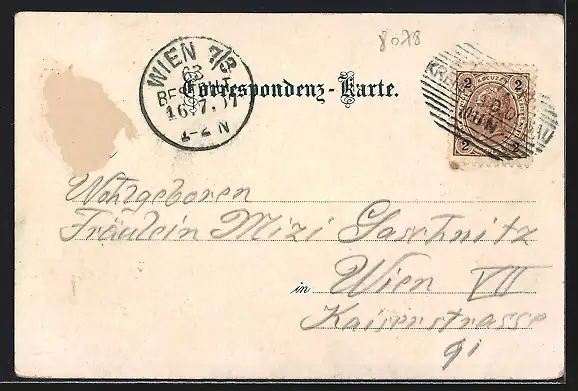 8078
WIEN 7/3
63
BESTELLT
16.7.
1-2 N
Correspondenz-Karte.
2 KREUZER 2
2 2
Wohlgeboren
Fräulein Mizi Gaschnitz
in Wien VII
Kaiserstrasse
91